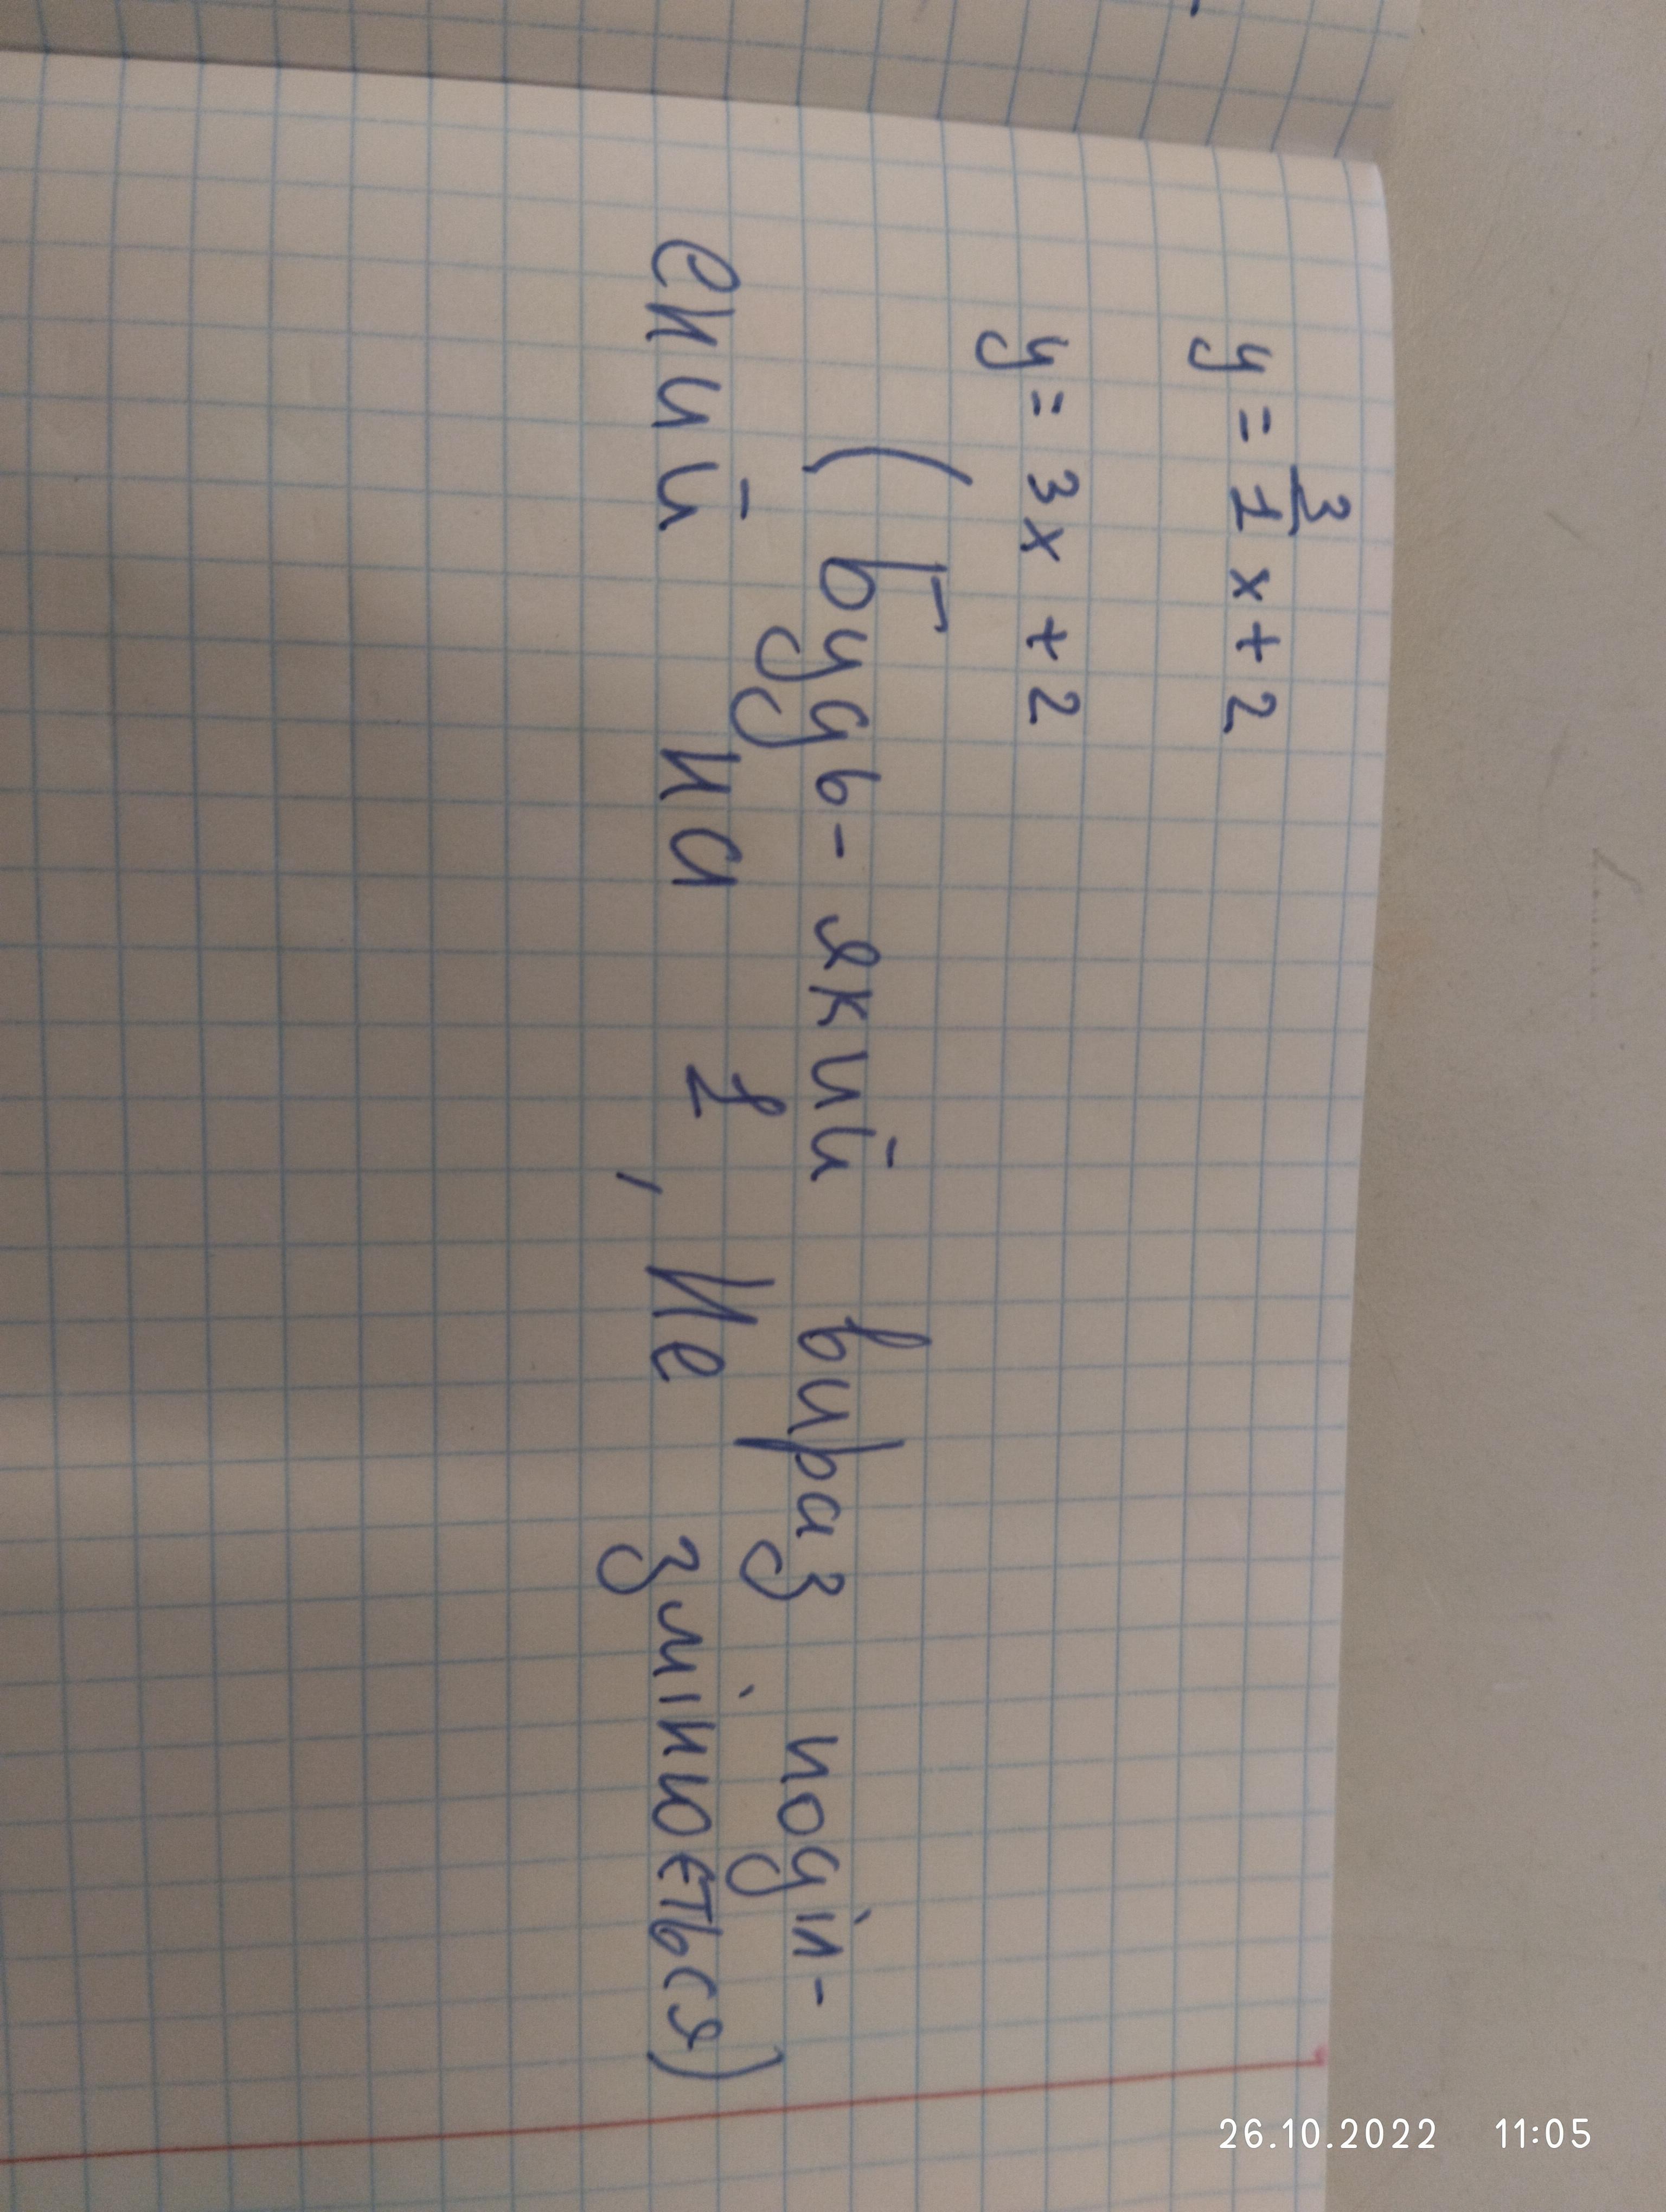 y = 3/1 x + 2
y = 3x + 2
( Будь-який вираз поділ-
ений на 1, не змінюється)
26.10.2022 11:05